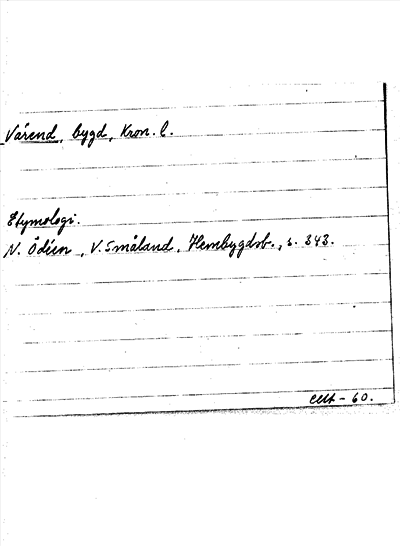 Värend, bygd, Kron. l.
Etymologi.
N. Ödéen, V. Småland, Hembygdsb., s. 343.
- 60.